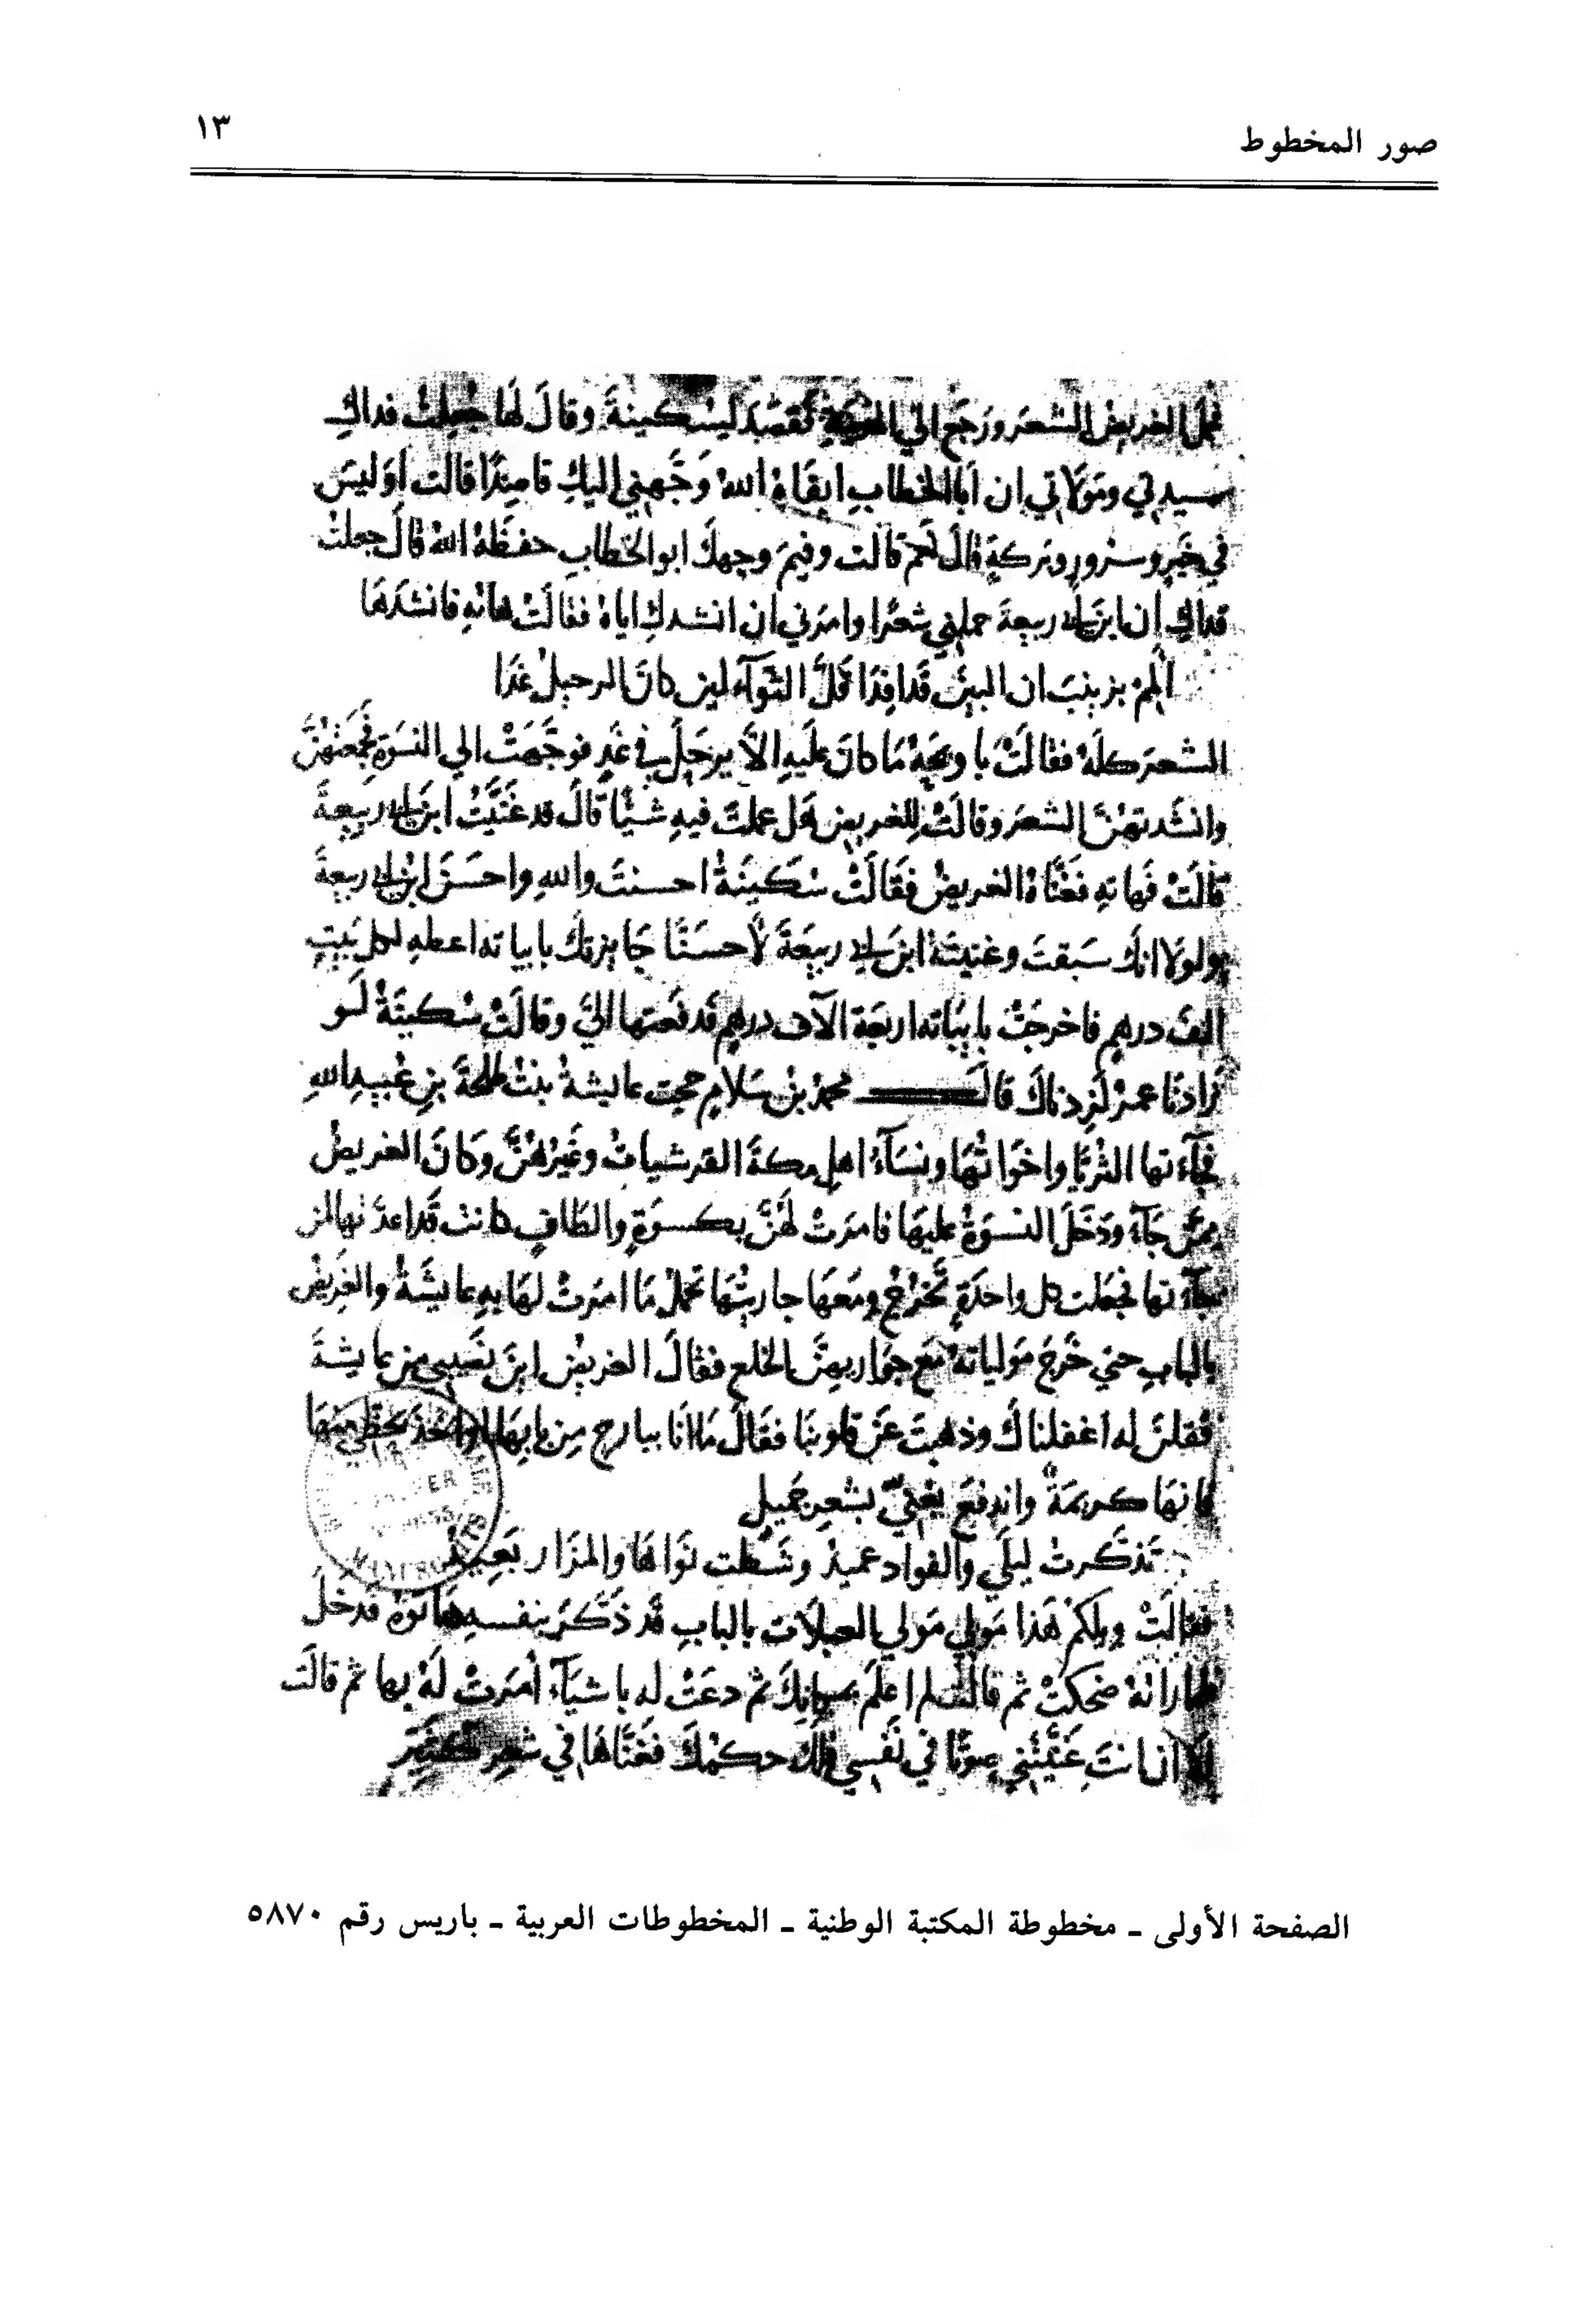 صور المخطوط
١٣
الغريض الشعر ورجع الي فقصد سكينة وقال لها جعلت فداكِ
سيدتي ومولاتي ان ابا الخطاب ابقاه الله وجهني اليك قاصدًا قالت اوليس
في خير وسرور وتركة قال نعم قالت وفيم وجهك ابو الخطاب حفظه الله قال جعلت
فداك ان ابن ابي ربيعة حملني شعرًا وامرني ان انشدك اياه فقالت هاته فانشدها
المم بزينب ان البين قد افدا قل الثوآء لين كان الرحيل غدا
الشعر كله فقالت يا ويحه ما كان عليه الا يرحل في غد فوجهت الي النسوة فجمعتهن
وانشدتهن الشعر وقالت للغريض هل عملت فيه شيًا قال قد غنيت ابن ابي ربيعة
قالت فهاته فغناه الغريض فقالت سكينة احسنت والله واحسن ابن ابي ربيعة
ولولا انك سبقت وغنيته ابن ابي ربيعة لاحسنا جايزتك بابياته اعطه لكل بيت
الف درهم فاخرجت بابياته اربعة الآف درهم فدفعتها الي وقالت سكينة لو
زادنا عمر لزدناك قال محمد بن سلام حجت عايشة بنت طلحة بن عبيد الله
فجآءتها الثريا واخواتها ونسآء اهل مكة القرشيات وغيرهن وكان الغريض
ممن جآء ودخل النسوة عليها فامرت لهن بكسوة والطاف كانت قد اعدتها لمن
جآءتها فجعلت كل واحدة تخرج ومعها جاريتها تحمل ما امرت لها به عايشة والغريض
بالباب حتي خرج مولياته مع جواريهن الخلع فقال الغريض اين نصيبي من عايشة
فقلن له اغفلناك وذهبت عن قلوبنا فقال ما انا ببارح من بابها او اخذ بحظي منها
فانها كريمة واندفع يغني بشعر جميل
تذكرت ليلي والفواد عميد وشطت نواها والمزار بعيد
فقالت ويلكم هذا مولي العبلات بالباب قد ذكر بنفسه هاتوه فدخل
فلما راته ضحكت ثم قالت لم اعلم بمكانك ثم دعت له باشيآء امرت له بها ثم قالت
ان انت غنيتني صوتًا في نفسي فلك حكمك فغناها في شعر كثير
الصفحة الأولى ـ مخطوطة المكتبة الوطنية ـ المخطوطات العربية ـ باريس رقم ٥٨٧٠